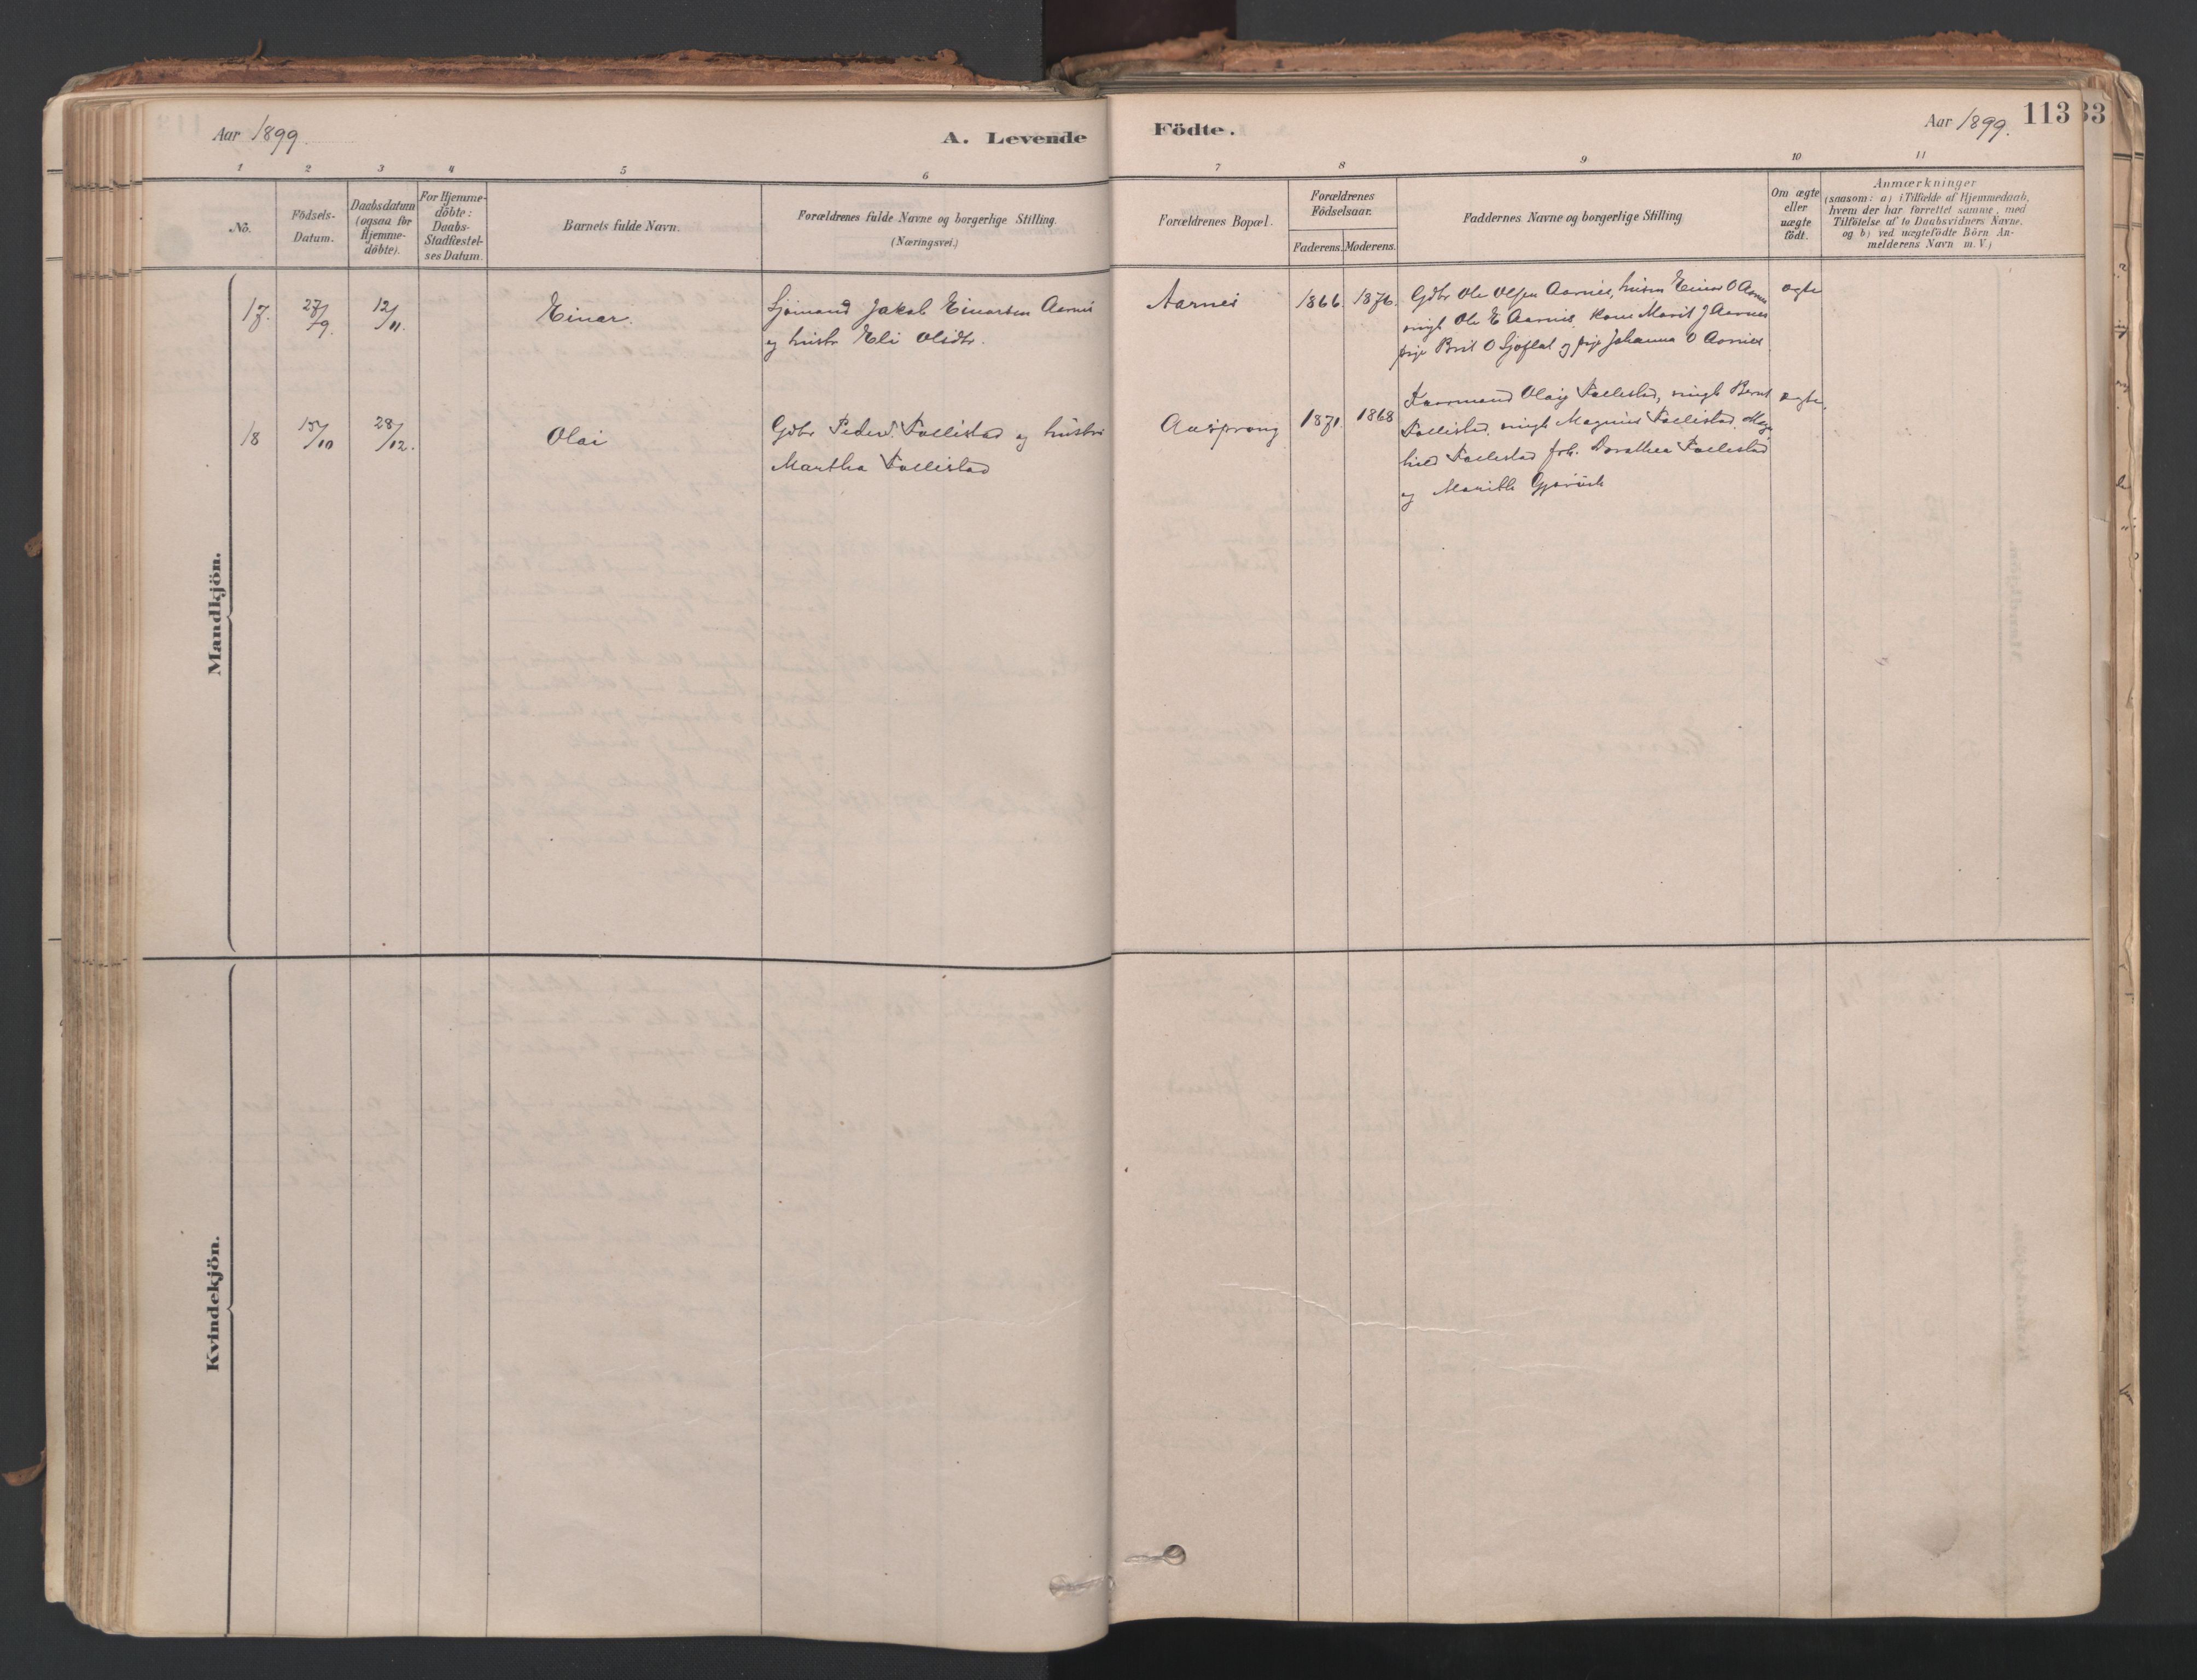 Aar 1899. A. Levende
Födte. Aar 1899. 113 33
1 2 3 4 5 6
7 8 9 10 11
No.
Födsels-
Datum.
Daabsdatum
(ogsaa for
Hjemme-
döbte).
For Hjemme-
döbte:
Daabs-
Stadfæstel-
ses Datum.
Barnets fulde Navn.
Forældrenes fulde Navne og borgerlige Stilling.
(Næringsvei.)
Forældrenes Bopæl.
Forældrenes
Födselsaar.
Faderens. Moderens.
Faddernes Navne og borgerlige Stilling
Om ægte
eller
uægte
födt.
Anmærkninger
(saasom: a) i Tilfælde af Hjemmedaab,
hvem der har forrettet samme, med
Tilföielse af to Daabsvidners Navne.
og b) ved uægtefödte Börn An-
melderens Navn m. V.)
Mandkjön.
17. 27/9. 12/11. Einar. Sjömand Jakob Einarsen Aarnes
og hustr Eli Olsdtr.
Aarnes 1866. 1876. Gdbr Ole Olsen Aarnes, husm Einar O Aarnes
ungk Ole E Aarnes. Kone Marit J Aarnes
pige Brit O Sjøflot og pige Johanna O Aarnes
ægte
18 15/10 28/12. Olai Gdbr Peder Follestad og hustru
Martha Follestad
Aasprong 1871. 1868 Olaig Follestad, ungk Bernt
Follestad. ungk Magnus Follestad. Mag
hild Follestad frk. Dorathea Follestad
og
ægte.
Kvindekjön.